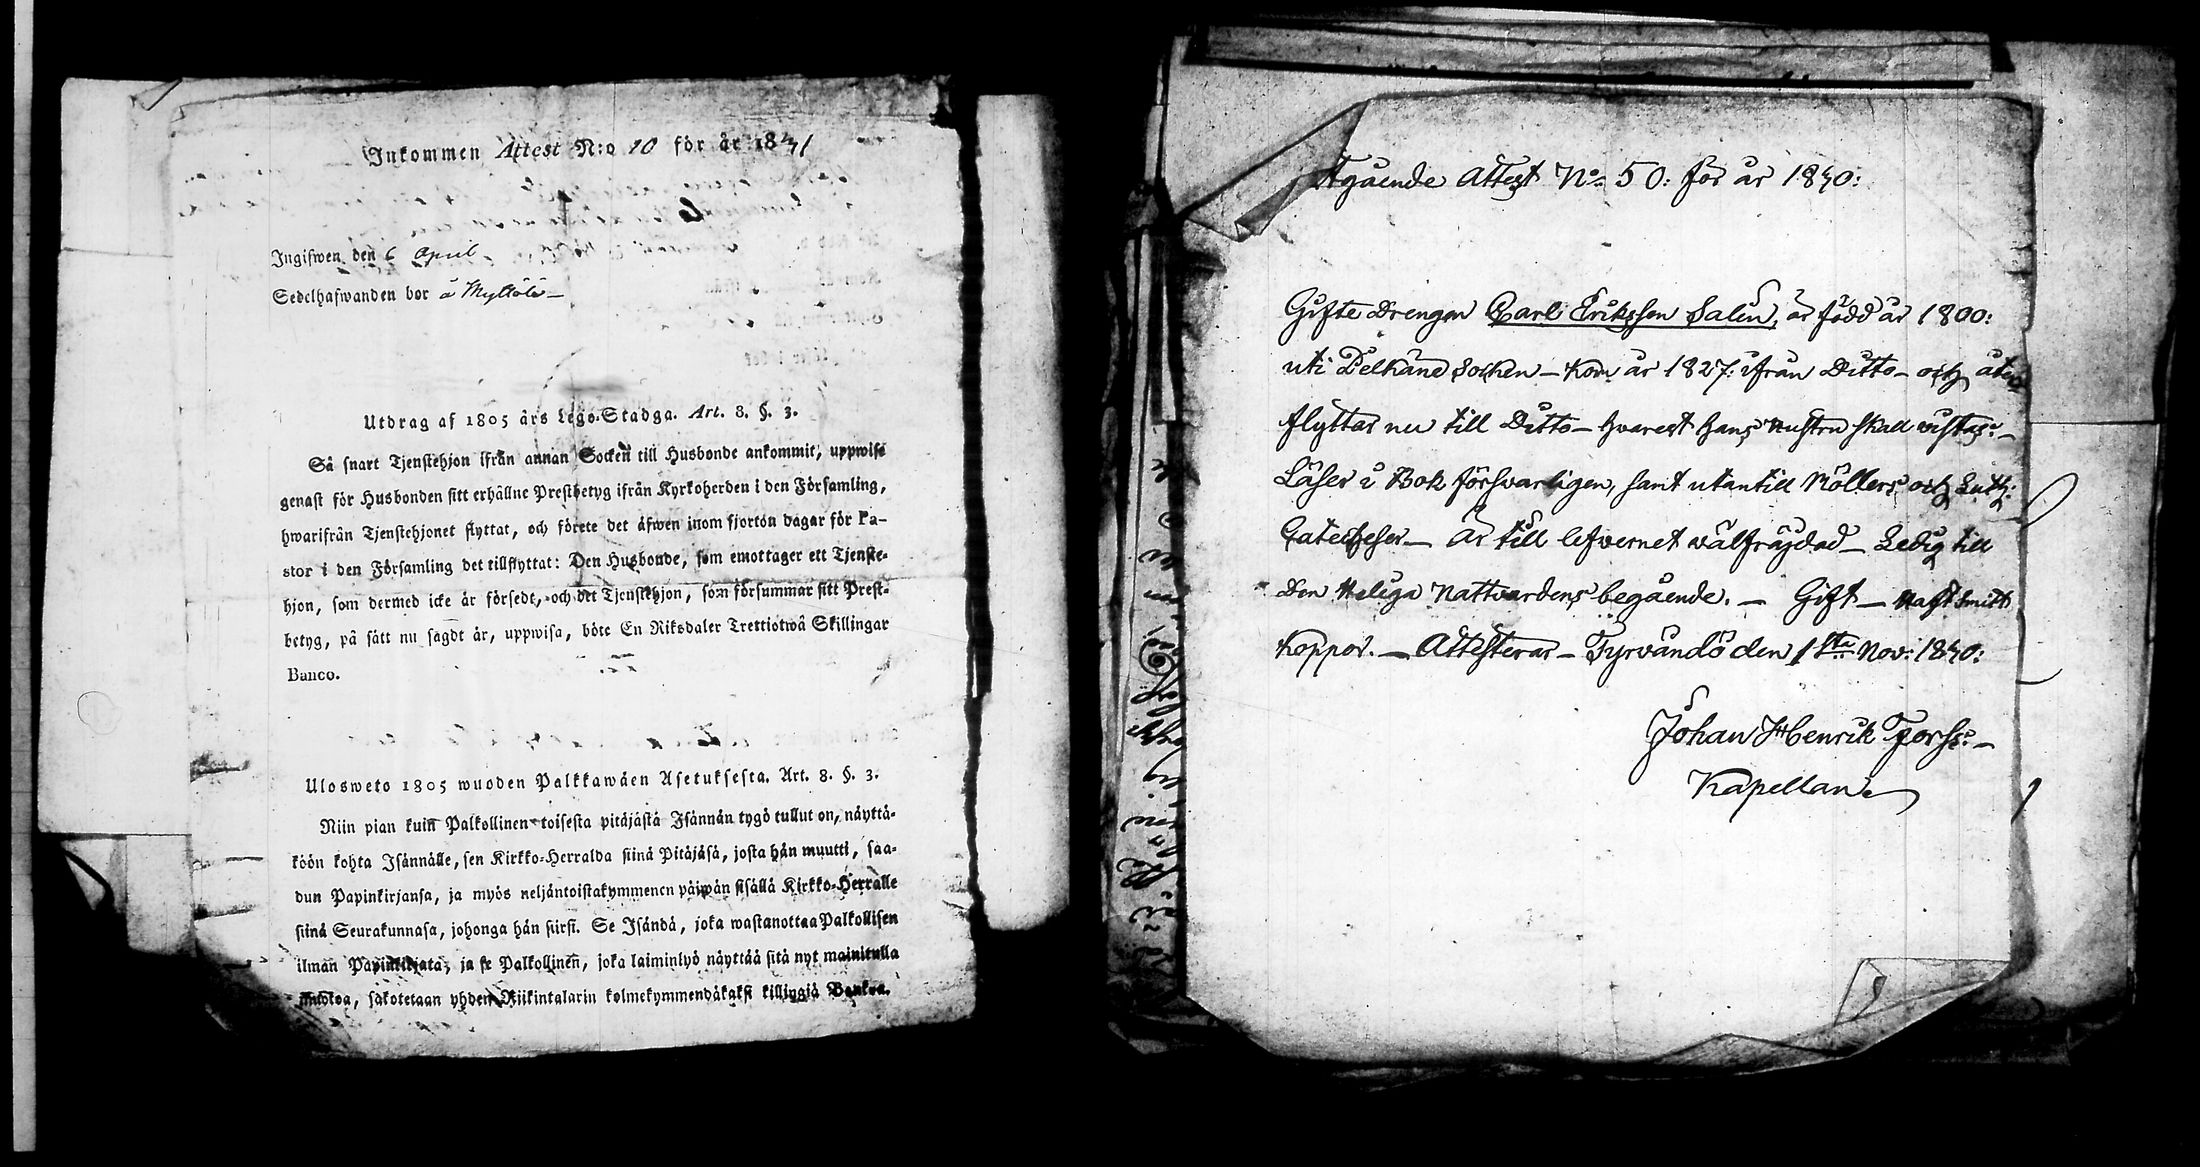 Inkommen Attest N:o 10 för år 1841
Ingifwen den 6 April
Sedelhafwanden bor å Myllölä
Utdrag af 1805 års Lego-Stadga. Art. 8. §. 3.
Så snart Tjenstehjon ifrån annan Socken till Husbonde ankommit, uppwise
genast för Husbonden sitt erhållne Prestbetyg ifrån Kyrkoherden i den Församling,
hwarifrån Tjenstehjonet flyttat, och förete det äfwen inom fjorton dagar för Pa-
stor i den Församling det tillflyttat: Den Husbonde, som emottager ett Tjenste-
hjon, som dermed icke är försedt, och det Tjenstehjon, som försummar sitt Prest-
betyg, på sätt nu sagdt är, uppwisa, böte En Riksdaler Trettiotwå Skillingar
Banco.
Ulosweto 1805 wuoden Palkkawäen Asetuksesta. Art. 8. §. 3.
Niin pian kuin Palkollinen toisesta pitäjästä Isännän tygö tullut on, näyttä-
köön kohta Isännälle, sen Kirkko-Herralda siinä Pitäjäsä, josta hän muutti, saa-
dun Papinkirjansa, ja myös neljäntoistakymmenen päiwän sisällä Kirkko-Herralle
siinä Seurakunnasa, johonga hän siirsi. Se Isändä, joka wastanottaa Palkollisen
ilman Papinkirjata, ja se Palkollinen, joka laiminlyö näyttää sitä nyt mainitulla
muotoa, sakotetaan yhden Riikintalarin kolmekymmendäkaksi killingiä Bankoa.
Afgående Attest No 50: för år 1840:
Gifte Drengen Carl Eriksson Salin, är född år 1800:
uti Pelkäne Socken – Kom år 1827: ifrån Ditto – och åter
flyttar nu till Ditto – hvarest hans Hustru skall vistas: –
Läser i Bok försvarligen, samt utantill Möllers och Luth:
Catecheser – Är till lefvernet välfrägdad – Ledig till
Den Heliga Nattvardens begående. – Gift – Haft Smitt
koppor. – Attesterar – Tyrvändö den 1sta Nov: 1840:
Johan Henrik Forss: –
Kapellan